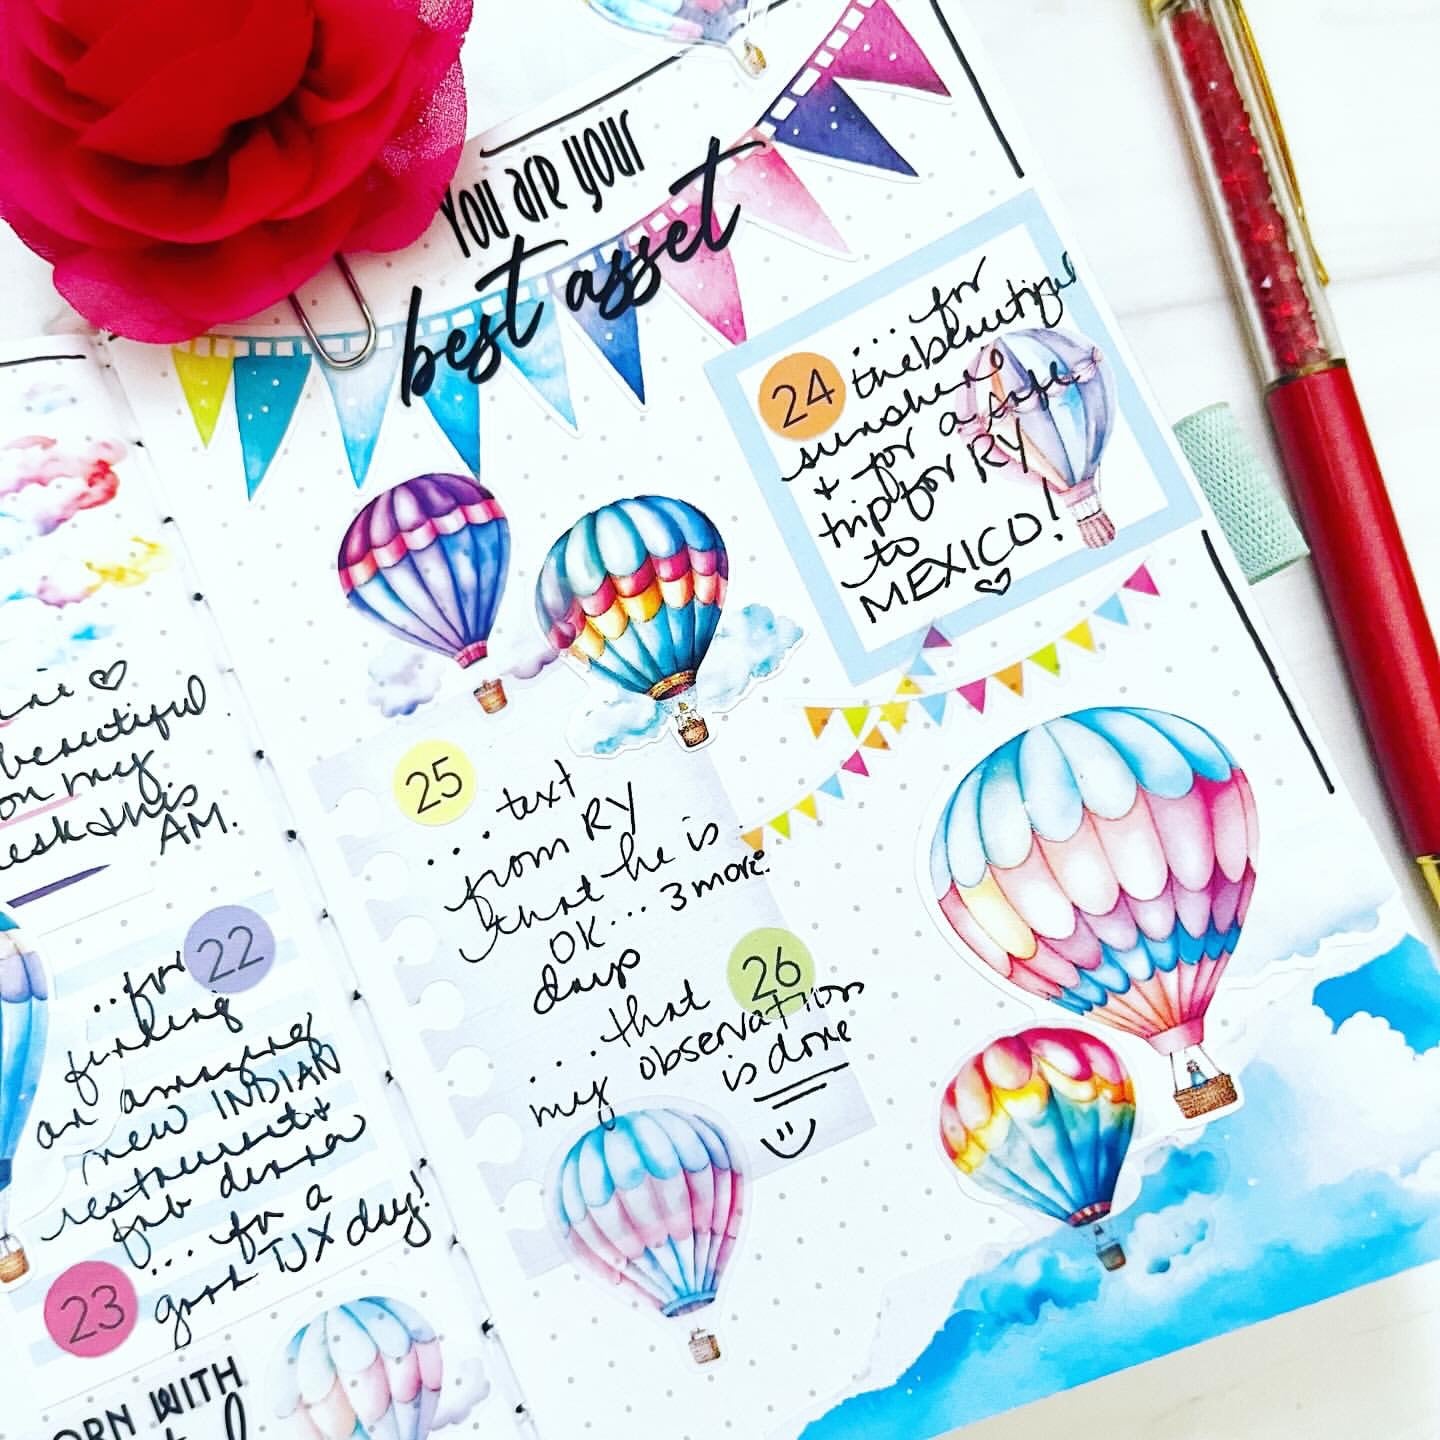 ne ♡
beautiful
on my
esk this
AM.
22
...for
finding
an amazing
new INDIAN
restaurant &
for dinner
23
... for a
good TJX day!
ORN WITH
You are your
best asset
24
...for
the beautiful
sunshine
+ for a safe
trip for RY
to
MEXICO! ♡
25
...text
from RY
that he is
OK... 3 more
days
26
...that
my observation
is done